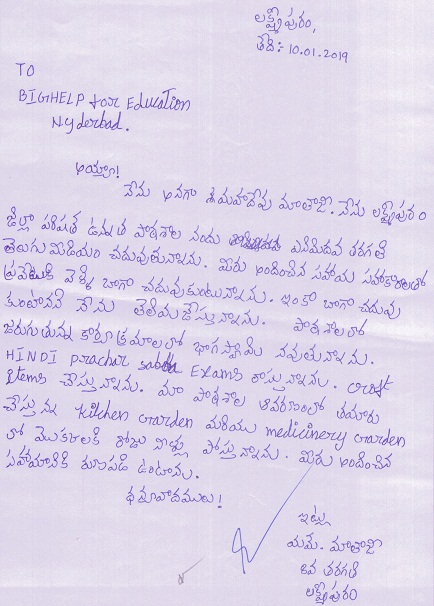 లక్ష్మీపురం,
తేది:- 10.01.2019
TO
BIGHELP for Education
Hyderbad.
అయ్యా!
నేను అనగా మాతాజి. నేను లక్ష్మీపురం
జిల్లా పరిషత్ ఉన్నత పాఠశాల నందు ఎనిమిదవ తరగతి
తెలుగు మీడియం చదువుతున్నాను. మీరు అందించిన సహాయ సహకారాలతో
వెళ్ళి బాగా చదువుకుంటున్నాను. ఇంకా బాగా చదువు
కుంటానని నేను తెలియజేస్తున్నాను. పాఠశాలలో
జరుగుతున్న కార్యక్రమాలలో నవుతున్నాను.
HINDI prachar sabda Exams రాస్తున్నాను. craft
items చేస్తున్నాను. మా పాఠశాల ఆవరణంలో తయారు
చేస్తున్న kitchen garden మరియు medicinery garden
లో మొక్కలకి రోజు నీళ్లు పోస్తున్నాను. మీరు అందించిన
సహాయానికి ఉంటాను.
ధన్యవాదములు!
ఇట్లు
యమ్. మాతాజి
8వ తరగతి
లక్ష్మీపురం